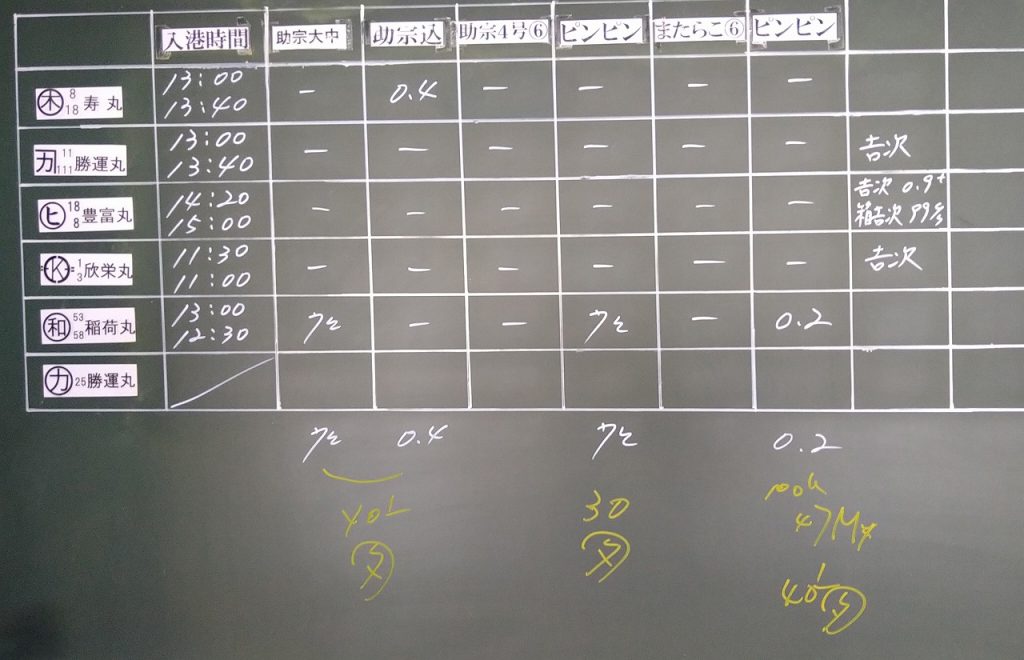 入港時間 助宗大中 助宗込 助宗4号⑥ ピンピン またらこ⑥ ピンピン
木 8 18 寿丸 13:00 13:40 ー 0.4 ー ー ー ー
カ 11 111 勝運丸 13:00 13:40 ー ー ー ー ー ー 吉次
ヒ 18 8 豊富丸 14:20 15:00 ー ー ー ー ー ー 吉次 0.9t 箱吉次
K 1 3 欣栄丸 11:30 11:00 ー ー ー ー ー ー 吉次
和 53 58 稲荷丸 13:00 12:30 ー ー ー 0.2
カ 25 勝運丸
0.4 0.2
30
47